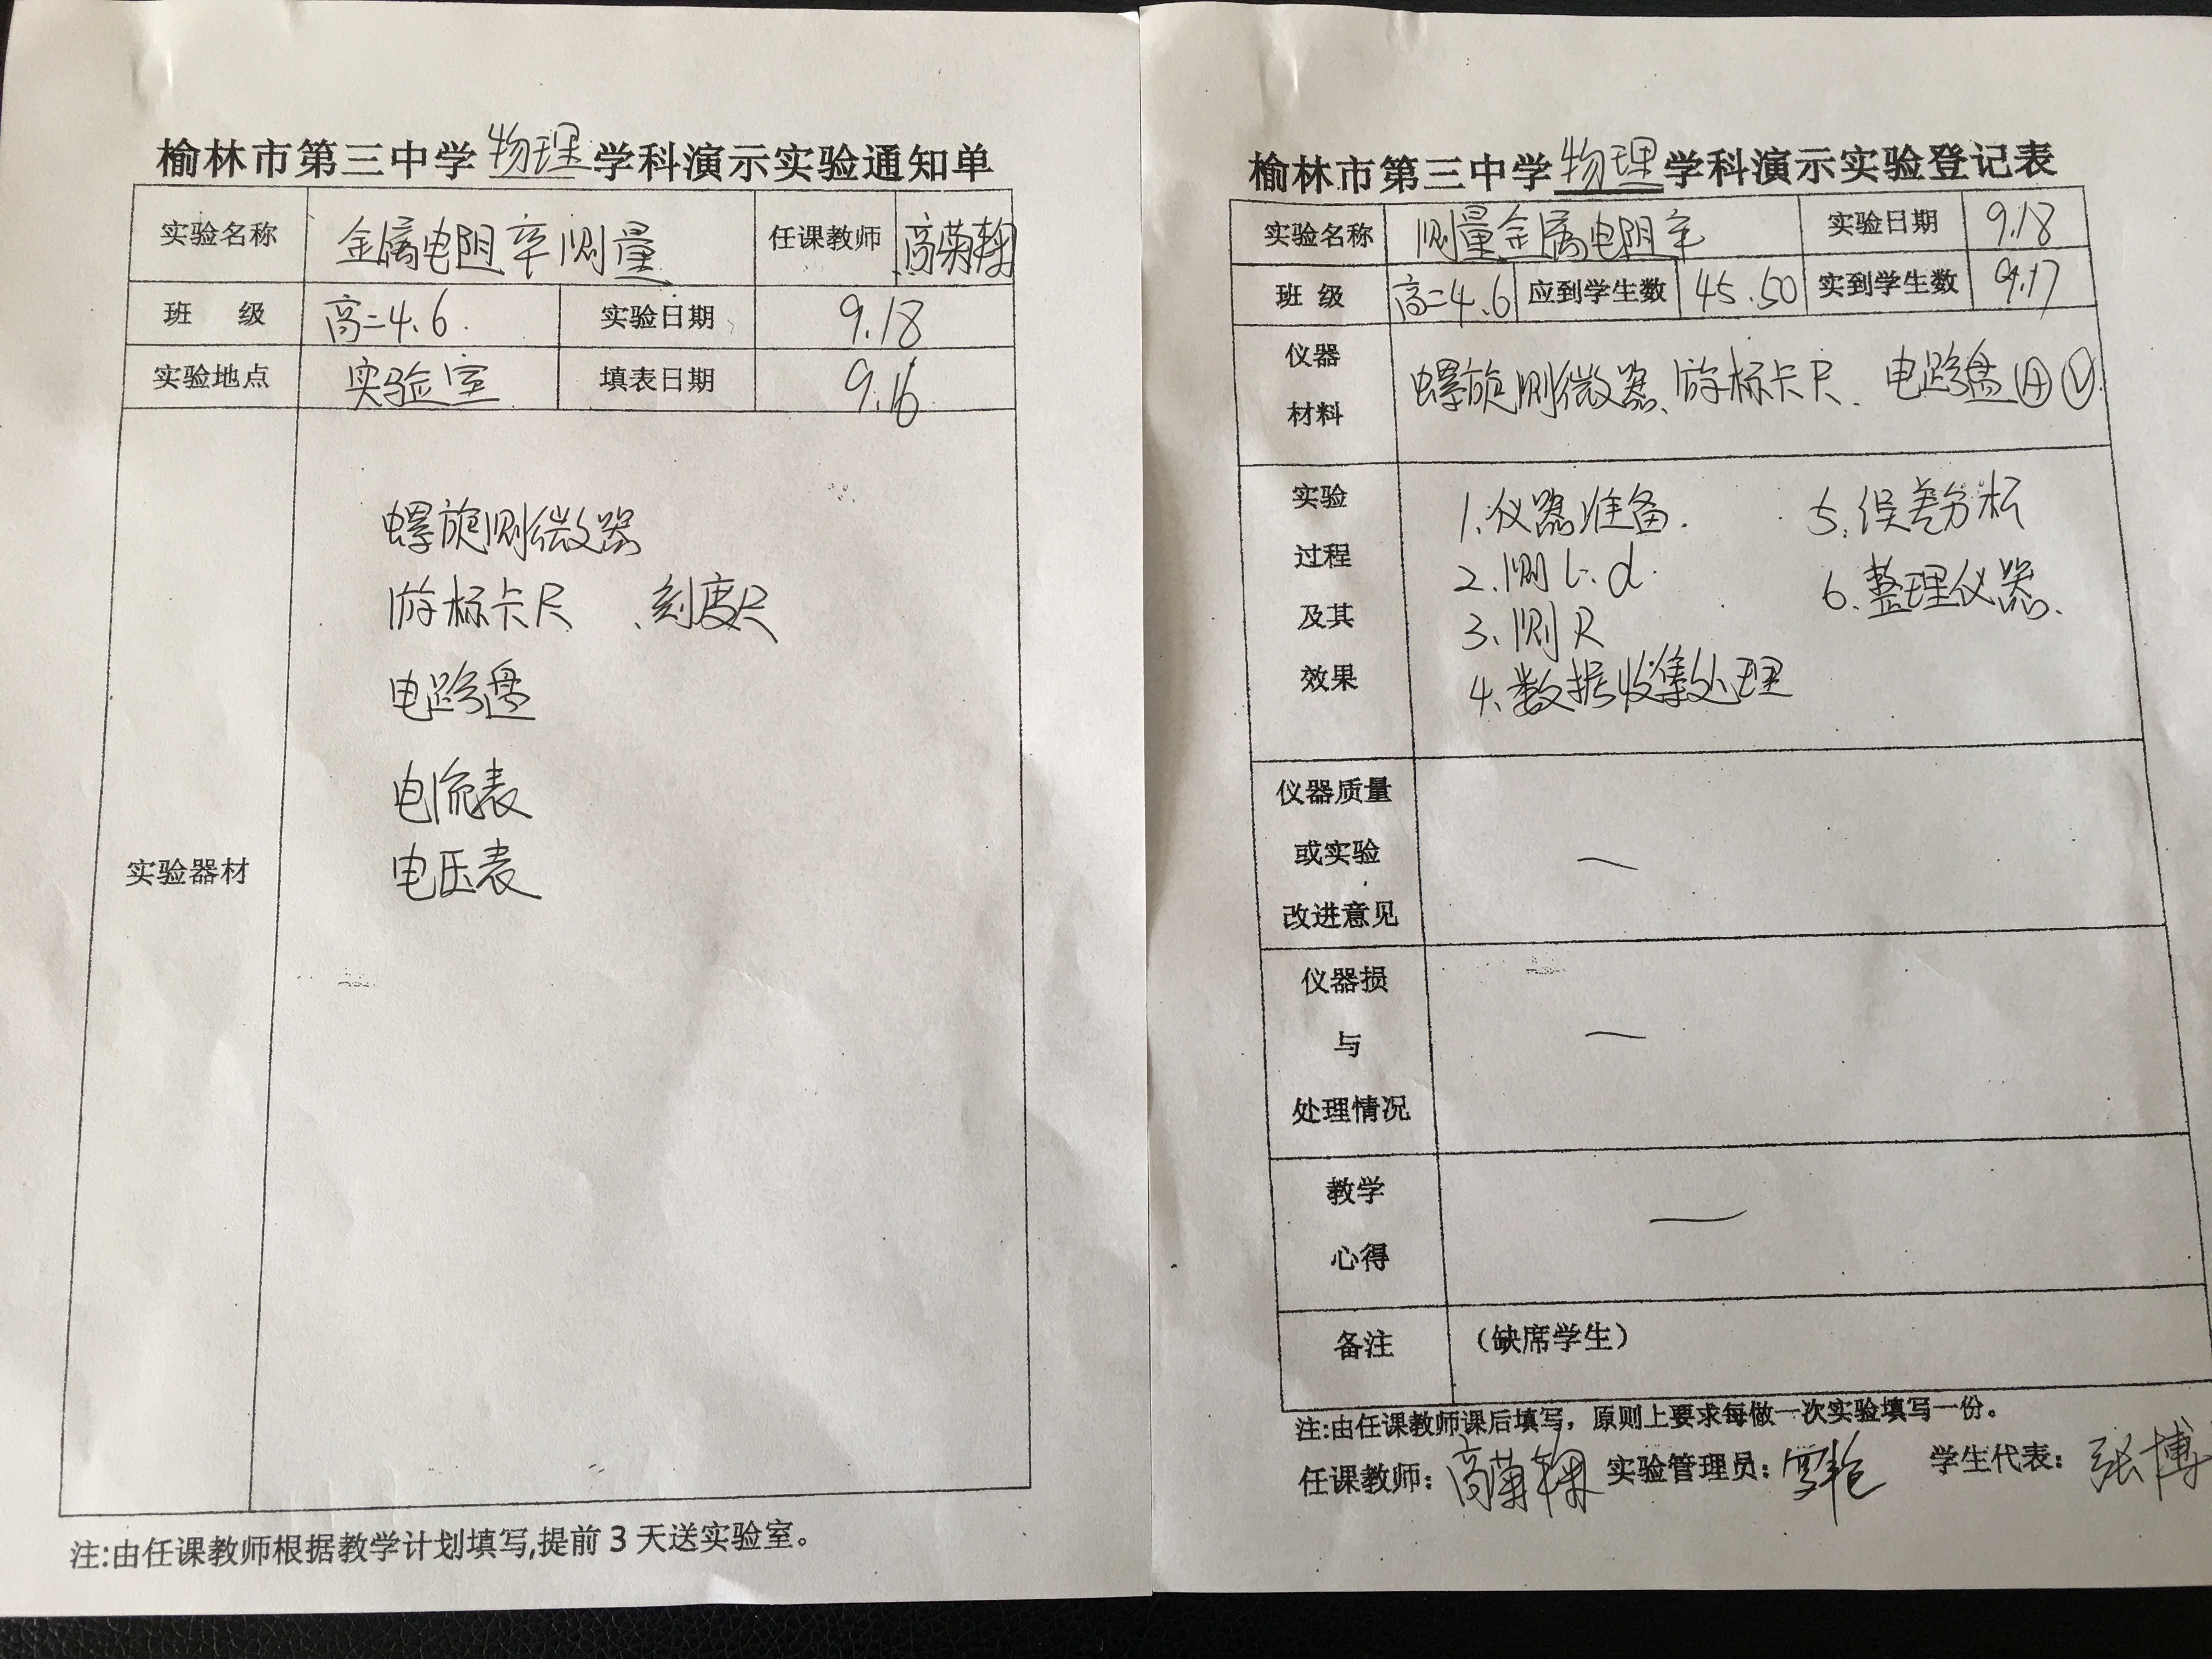 榆林市第三中学物理学科演示实验通知单
实验名称 金属电阻率测量 任课教师 高菊
班 级 高二4.6. 实验日期 9.18
实验地点 实验室 填表日期 9.16
实验器材
螺旋测微器
游标卡尺 、刻度尺
电路盘
电流表
电压表
注:由任课教师根据教学计划填写,提前3天送实验室。
榆林市第三中学物理学科演示实验登记表
实验名称 测量金属电阻率 实验日期 9.18
班 级 高二4.6 应到学生数 45.50 实到学生数 9.17
仪器
材料
螺旋测微器、游标卡尺. 电路盘 Ⓐ Ⓥ.
实验
过程
及其
效果
1.仪器准备.
2.测L.d.
3.测R
4.数据收集处理
5.误差分析
6.整理仪器.
仪器质量
或实验
改进意见
—
仪器损
与
处理情况
—
教学
心得
—
备注 （缺席学生）
注:由任课教师课后填写，原则上要求每做一次实验填写一份。
任课教师: 高菊 实验管理员: 学生代表: 张博